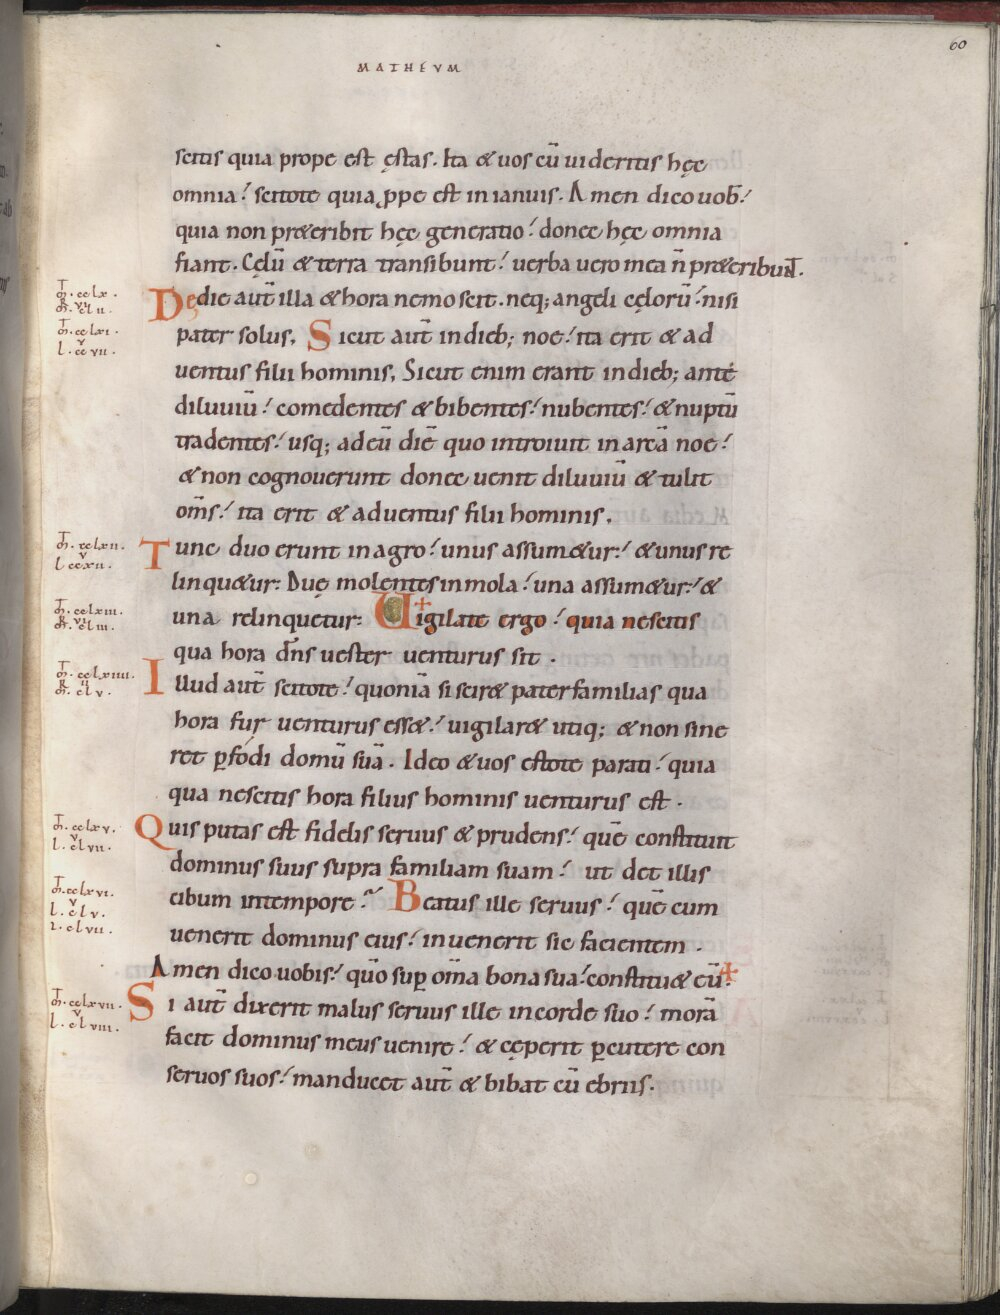 60
MATHEVM
scitis quia prope est ęstas. Ita & uos cū uideritis hęc
omnia; scitote quia ꝓpe est in ianuis. Amen dico uob;
quia non præ&eribit hęc generatio; donec hęc omnia
fiant. Cęlū & terra transibunt; uerba uero mea n̄ præ&eribunt.
De die aut̄ illa & hora nemo scit. neq; angeli cęlorū; nisi
pater solus. Sicut aut̄ in dieb; noe; ita erit & ad
uentus filii hominis. Sicut enim erant in dieb; ante
diluuiū; comedentes & bibentes; nubentes; & nuptū
tradentes; usq; ad eū diē quo introiuit in arcā noe;
& non cognouerunt donec uenit diluuiū & tulit
om̄s; ita erit & aduentus filii hominis.
Tunc duo erunt in agro; unus assum&ur; & unus re
linqu&ur: Duę molentes in mola; una assum&ur; &
una relinquetur: Uigilate ergo; quia nescitis
qua hora dn̄s uester uenturus sit.
Illud aut̄ scitote; quoniā si scir& paterfamilias qua
hora fur uenturus ess&; uigilar& utiq; & non sine
ret ꝑfodi domū suā. Ideo & uos estote parati; quia
qua nescitis hora filius hominis uenturus est.
Quis putas est fidelis seruus & prudens; quē constituit
dominus suus supra familiam suam; ut det illis
cibum in tempore? Beatus ille seruus; quē cum
uenerit dominus eius; inuenerit sic facientem.
Amen dico uobis; qūo sup̱ om̄a bona sua; constitu& eū;
Si aut̄ dixerit malus seruus ille in corde suo; morā
facit dominus meus uenire; & cęperit ꝑcutere con
seruos suos; manducet aut̄ & bibat cū ebriis.